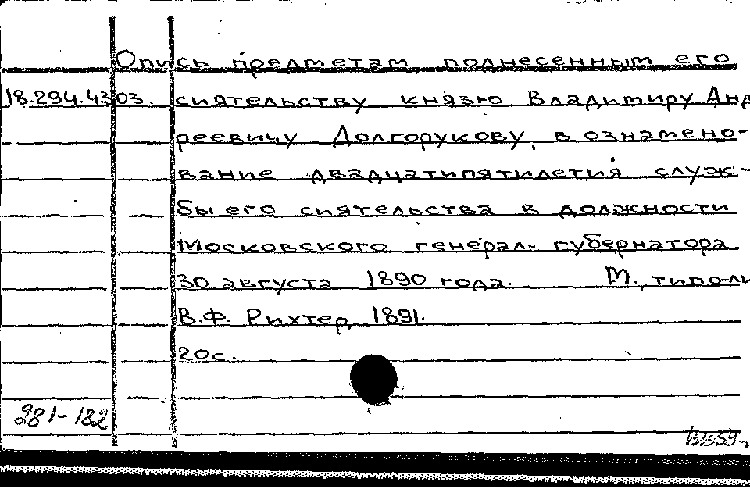 Опись предметам поднесенным его
18.294.4303. сиятельству князю Владимиру Анд
реевичу Долгорукову, в ознамено-
вание двадцатипятилетия служ-
бы его сиятельства в должности
Московского генерал-губернатора
30 августа 1890 года. М., типо-ли
В.Ф. Рихтер, 1891.
20с.
281-182